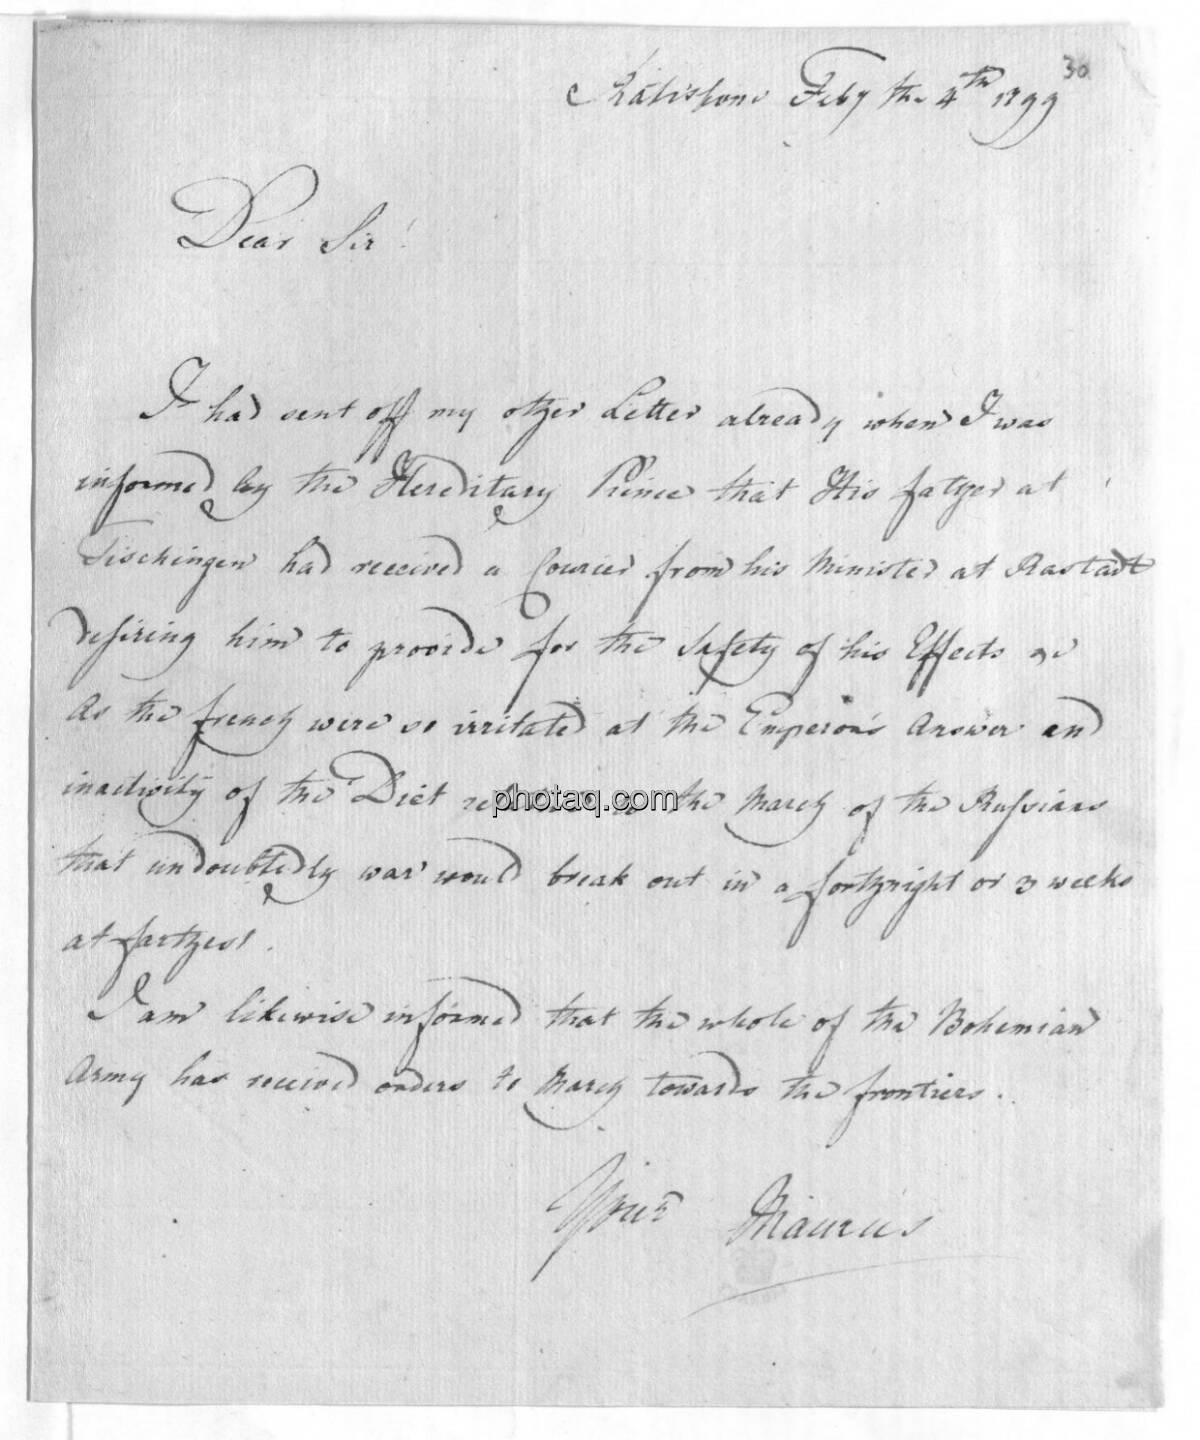 30
Ratisbone Feby the 4th 1799
Dear Sir!
I had sent off my other Letter already when I was
informed by the Hereditary Prince that His father at
Tischingen had received a Courier from his Minister at Rastadt
desiring him to provide for the Safety of his Effects
As the french were so irritated at the Emperor's Answer and
inactivity of the Diet relative to the March of the Russians
that undoubtedly war would break out in a fortnight or 3 weeks
at farthest.
I am likewise informed that the whole of the Bohemian
Army has received orders to March towards the frontiers.
Your Maurus
photaq.com